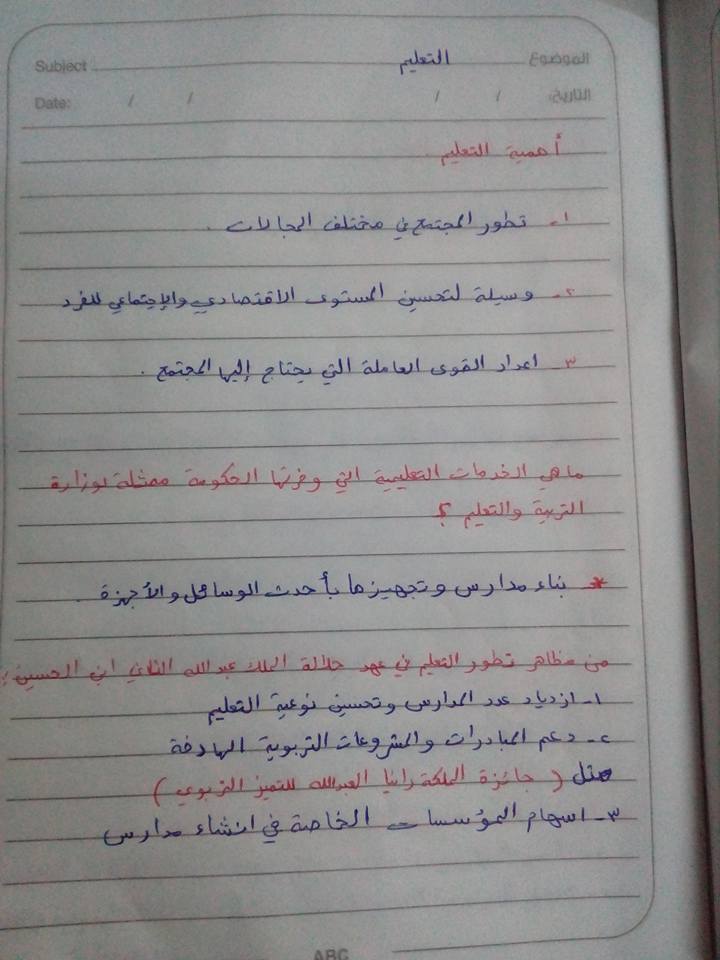 Subject التعليم الموضوع
Date: / / / / التاريخ:
أهمية التعليم.
١- تطور المجتمع في مختلف المجالات.
٢- وسيلة لتحسين المستوى الاقتصادي والإجتماعي للفرد
٣- اعداد القوى العاملة التي يحتاج إليها المجتمع.
ماهي الخدمات التعليمية التي وفرتها الحكومة ممثلة بوزارة
التربية والتعليم؟
* بناء مدارس وتجهيزها بأحدث الوسائل والأجهزة.
من مظاهر تطور التعليم في عهد جلالة الملك عبدالله الثاني ابن الحسين:
١- ازدياد عدد المدارس وتحسين نوعية التعليم
٢- دعم المبادرات والمشروعات التربوية الهادفة
مثل (جائزة الملكة رانيا العبدالله للتميز التربوي)
٣- اسهام المؤسسات الخاصة في انشاء مدارس
ABC